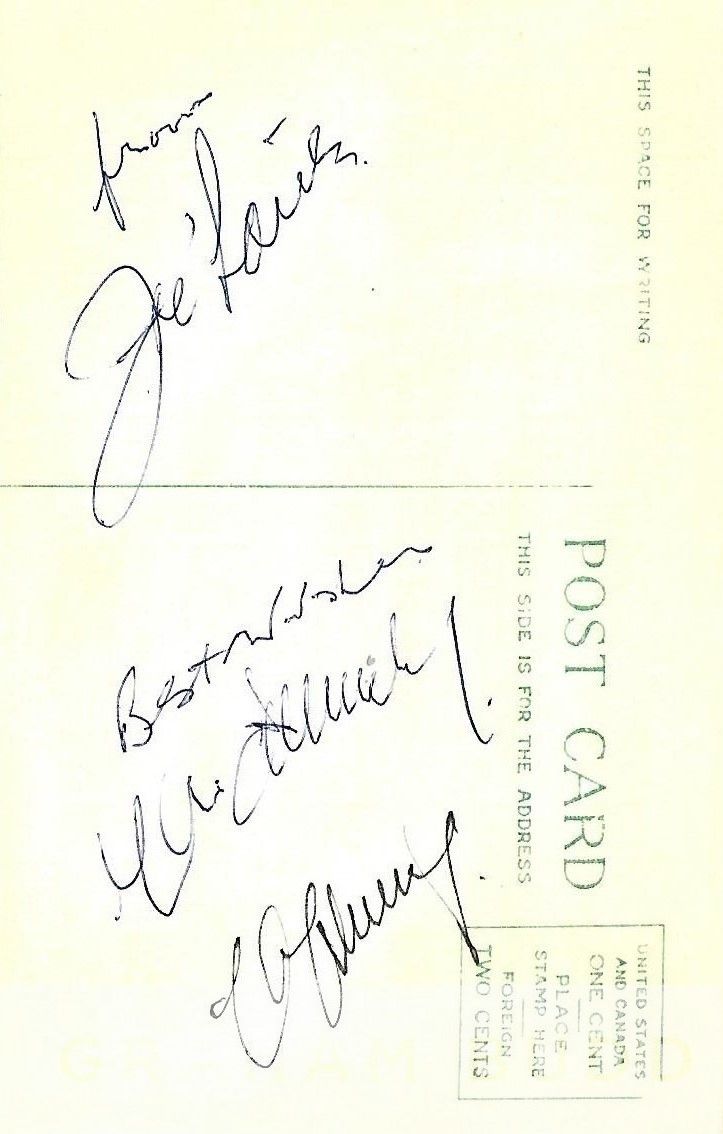 THIS SPACE FOR WRITING
POST CARD
THIS SIDE IS FOR THE ADDRESS
UNITED STATES
AND CANADA
ONE CENT
PLACE
STAMP HERE
FOREIGN
TWO CENTS
from
Joe
Best Wishes